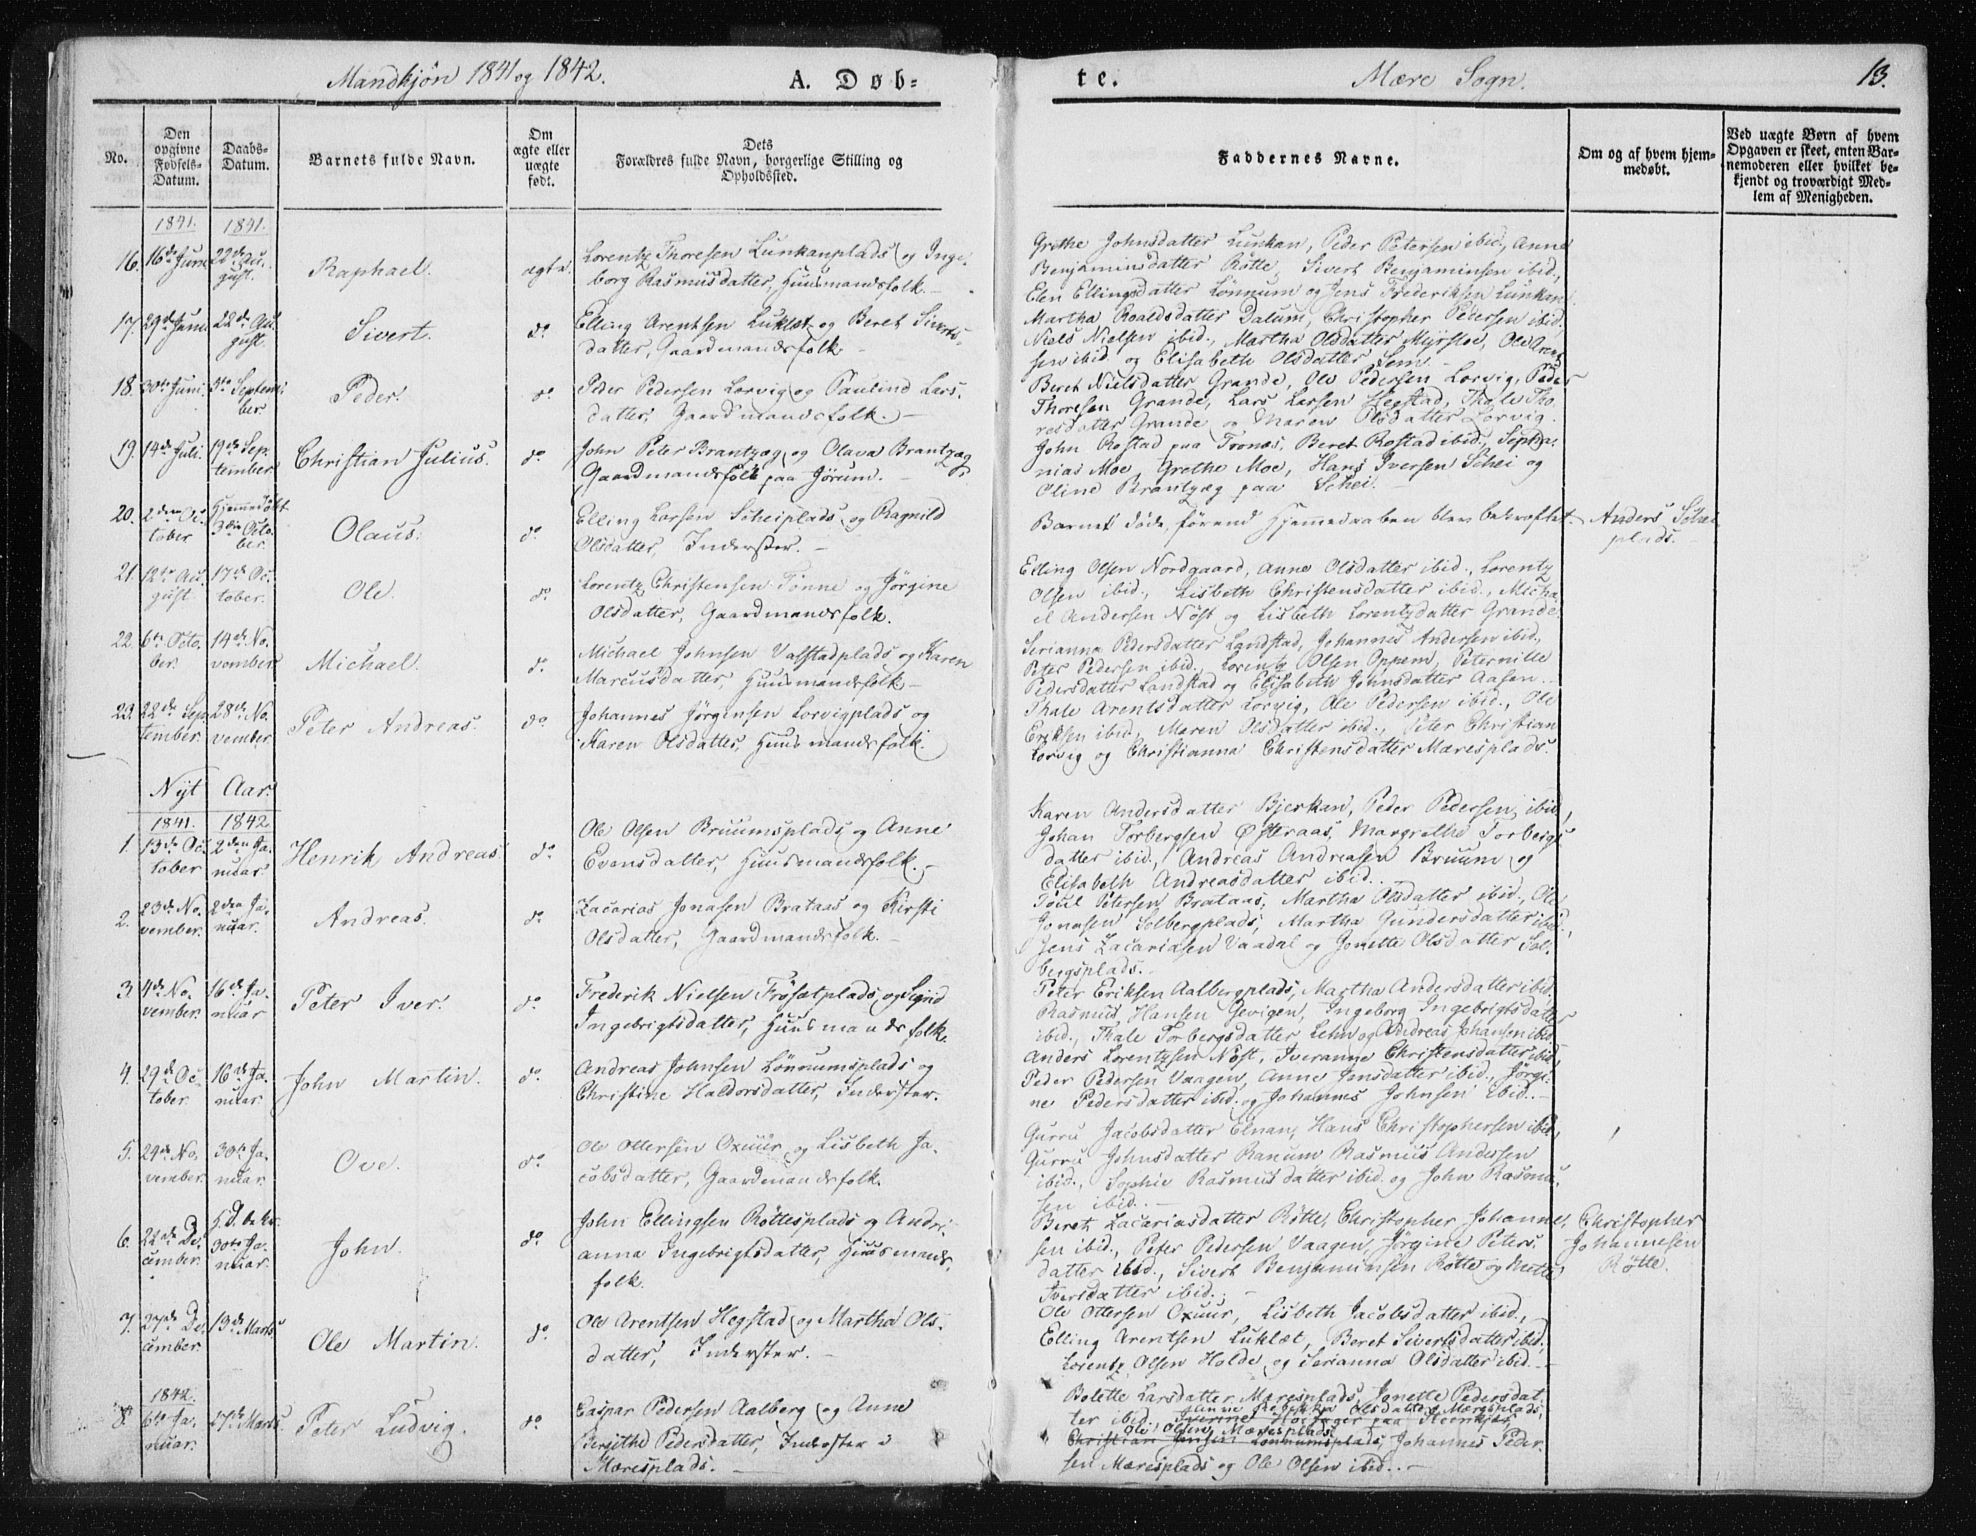 Mandkjön 1841 og 1842.
A. Døb=
te.
Mære Sogn.
13.
No.
Den opgivne Fødsels-Datum.
Daabs-Datum.
Barnets fulde Navn.
Om ægte eller uægte født.
Dets Forældres fulde Navn, borgerlige Stilling og Opholdssted.
Faddernes Navne.
Om og af hvem hjemmedøbt.
Ved uægte Børn af hvem Opgaven er skeet, enten Barnemoderen eller hvilket bekjendt og troværdigt Medlem af Menigheden.
1841. 1841.
16. 16de Juni 22de August. Raphael. ægte.
Lorentz Thoresen Lunkanplads og Inge-
borg Rasmusdatter, Huusmandsfolk. –
Grethe Johnsdatter Lunkan, Peder Petersen ibid., Anne
Benjaminsdatter Røtte, Sivert Benjaminsen ibid.,
Elen Ellingsdatter Lönnum og Jens Frederiksen Lunkan.
17. 29de Juni 22de August. Sivert. do
Elling Arentsen Luklæt og Beret Siverts-
datter, Gaardmandsfolk –
Martha Roaldsdatter Dalum, Christopher Pedersen ibid.
Niels Nielsen ibid., Martha Olsdatter Myrstoe, Ole Arent-
sen ibid og Elisabeth Olsdatter Sem –
18. 30te Juni. 5te September Peder. do
Peder Pedersen Lorvig og Paulina Lars-
datter, Gaardmandsfolk. –
Beret Nielsdatter Grande, Ole Pedersen Lorvig, Peder
Thoresen Grande, Lars Larsen Hegstad, Thale Tho-
resdatter Grande og Maren Olsdatter Lorvig.
19. 14de Juli. 19de September. Christian Julius. do
John Peter Brantzæg og Olava Brantzæg
Gaardmandsfolk paa Jørum. –
John Rostad paa Tronæs, Beret Rostad ibid., Sepha-
nias Moe, Grethe Moe, Hans Iversen Schei og
Oline Brantzæg paa Schei. –
20. 2den October Hjemmedøbt 3die October. Olaus. do
Elling Larsen Scheiplads og Ragnild
Olsdatter, Inderster. –
Barnet døde, førend Hjemmedaaben blev bekræftet.
Anders Schei-
plads. –
21. 12te August 17de October. Ole. do
Lorentz Christensen Tønne og Jörgine
Olsdatter, Gaardmandsfolk.
Elling Olsen Nordgaard, Anne Olsdatter ibid., Lorentz
Olsen ibid., Lisbeth Christensdatter ibid., Micha-
el Andersen Nöst og Lisbeth Lorentzdatter Grande.
22. 6te October. 14de November. Michael. do
Michael Johnsen Valstadplads og Karen
Marcusdatter, Huusmandsfolk –
Serianna Pedersdatter Landstad, Johannes Andersen ibid.,
Peter Pedersen ibid., Lorentz Olsen Oppem, Peternille
Pedersdatter Landstad og Elisabeth Johnsdatter Aasen. –
23. 22de September. 28de November Peter Andreas. do
Johannes Jörgensen Lorvigplads og
Karen Olsdatter, Huusmandsfolk.
Thale Arentsdatter Lorvig, Ole Pedersen ibid., Ole
Eriksen ibid., Maren Olsdatter ibid., Peter Christian
Lorvig og Christianna Christensdatter Mæresplads.
Nyt Aar.
1841. 1842
1. 13de October 2den Januar. Henrik Andreas. do
Ole Olsen Bruumsplads og Anne
Evensdatter, Huusmandsfolk. –
Karen Andersdatter Bjerkan, Peder Pedersen ibid,
Johan Torbergsen Østeraas, Margrethe Torbergs-
datter ibid., Andreas Andreasen Bruum og
Elisabeth Andreasdatter ibid.
2. 23de November. 2den Januar. Andreas. do
Zacarias Jonasen Brataas og Kirsti
Olsdatter, Gaardmandsfolk. –
Poul Petersen Brataas, Martha Olsdatter ibid., Ole
Jonasen Solbergplads, Martha Gundersdatter ibid,
Jens Zacariasen Vaadal og Jonette Olsdatter Sol-
bergsplads.
3. 4de November. 16de Januar Peter Iver. do
Frederik Nielsen Frösætplads og Sigrid
Ingebrigtsdatter, Huusmandsfolk.
Peter Eriksen Aalbergplads, Martha Andersdatter ibid.
Rasmus Hansen Gevigen, Ingeborg Ingebrigtsdatter
ibid., Thale Torbergsdatter Lehn og Andreas Johansen ibid.
4. 29de October. 16de Januar. John Martin. do
Andreas Johnsen Lönnumsplads og
Christine Haldorsdatter, Inderster.
Anders Lorentzsen Nöst, Iveranne Christensdatter ibid
Peder Pedersen Vaagen, Anne Jensdatter ibid., Jörgi-
ne Pedersdatter ibid. og Johannes Johnsen ibid. –
5. 29de November. 30te Januar. Ove. do
Ole Ottersen Oxuur og Lisbeth Ja-
cobsdatter, Gaardmandsfolk.
Gurru Jacobsdatter Elnan, Hans Christophersen ibid,
Gurru Johnsdatter Ranum Rasmus Andersen
ibid., Sophie Rasmusdatter ibid. og John Rasmu-
sen ibid. –
6. 22de December. 30te Januar. John. do
John Ellingsen Röttesplads og Andri-
anna Ingebrigtsdatter, Huusmands-
folk.
Beret Zacariasdatter Rötte, Christopher Johanne-
sen ibid., Peter Pedersen Vaagen, Jörgine Peters-
datter ibid., Sivert Benjaminsen Rötte og Mette
Iversdatter ibid. –
Christopher
Johannesen
Rötte.
7. 27de December. 13de Marts Ole Martin. do
Ole Arentsen Hegstad og Martha Ols-
datter, Inderster. –
Ole Ottersen Oxuur, Lisbeth Jacobsdatter ibid.,
Elling Arentsen Luklæt, Beret Sivertsdatter ibid.
Lorentz Olsen Holde og Serianna Olsdatter ibid. –
1842.
8. 6te Januar. 27de Marts. Peter Ludvig. do
Caspar Pedersen Aalberg og Anne
Bergithe Pedersdatter, Inderster i
Mæresplads. –
Bolette Larsdatter Mæresplads, Jonette Pedersdat-
ter ibid., Anne Rebekka Olsdatter Mæresplads,
Ole Olsen Mæresplads,
Christian Jensen Lönnumsplads, Johannes Peder-
sen Mæresplads og Ole Olsen ibid. –